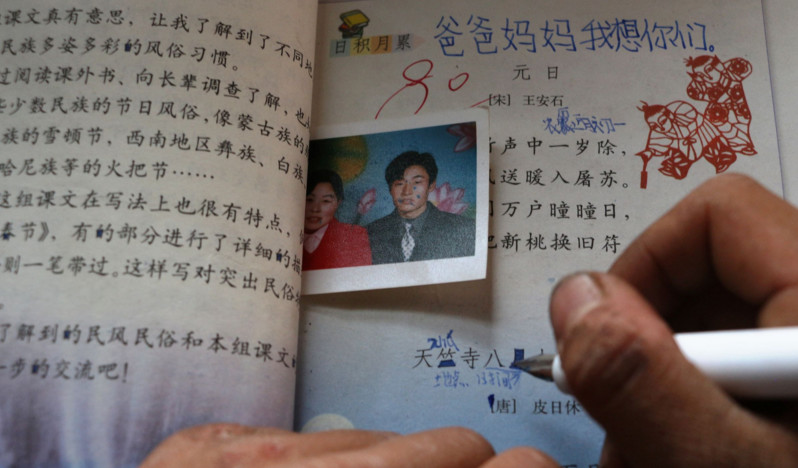 课文真有意思，让我了解到了不同地
民族多姿多彩的风俗习惯。
过阅读课外书、向长辈调查了解，也
些少数民族的节日风俗，像蒙古族的
族的雪顿节，西南地区彝族、白族
哈尼族等的火把节……
这组课文在写法上也很有特点，
春节》，有的部分进行了详细的描
则一笔带过。这样写对突出民俗
了解到的民风民俗和本组课文
一步的交流吧！
日积月累
爸爸妈妈我想你们。
元日
[宋] 王安石
声中一岁除，
送暖入屠苏。
万户曈曈日，
把新桃换旧符
天竺寺八
[唐] 皮日休